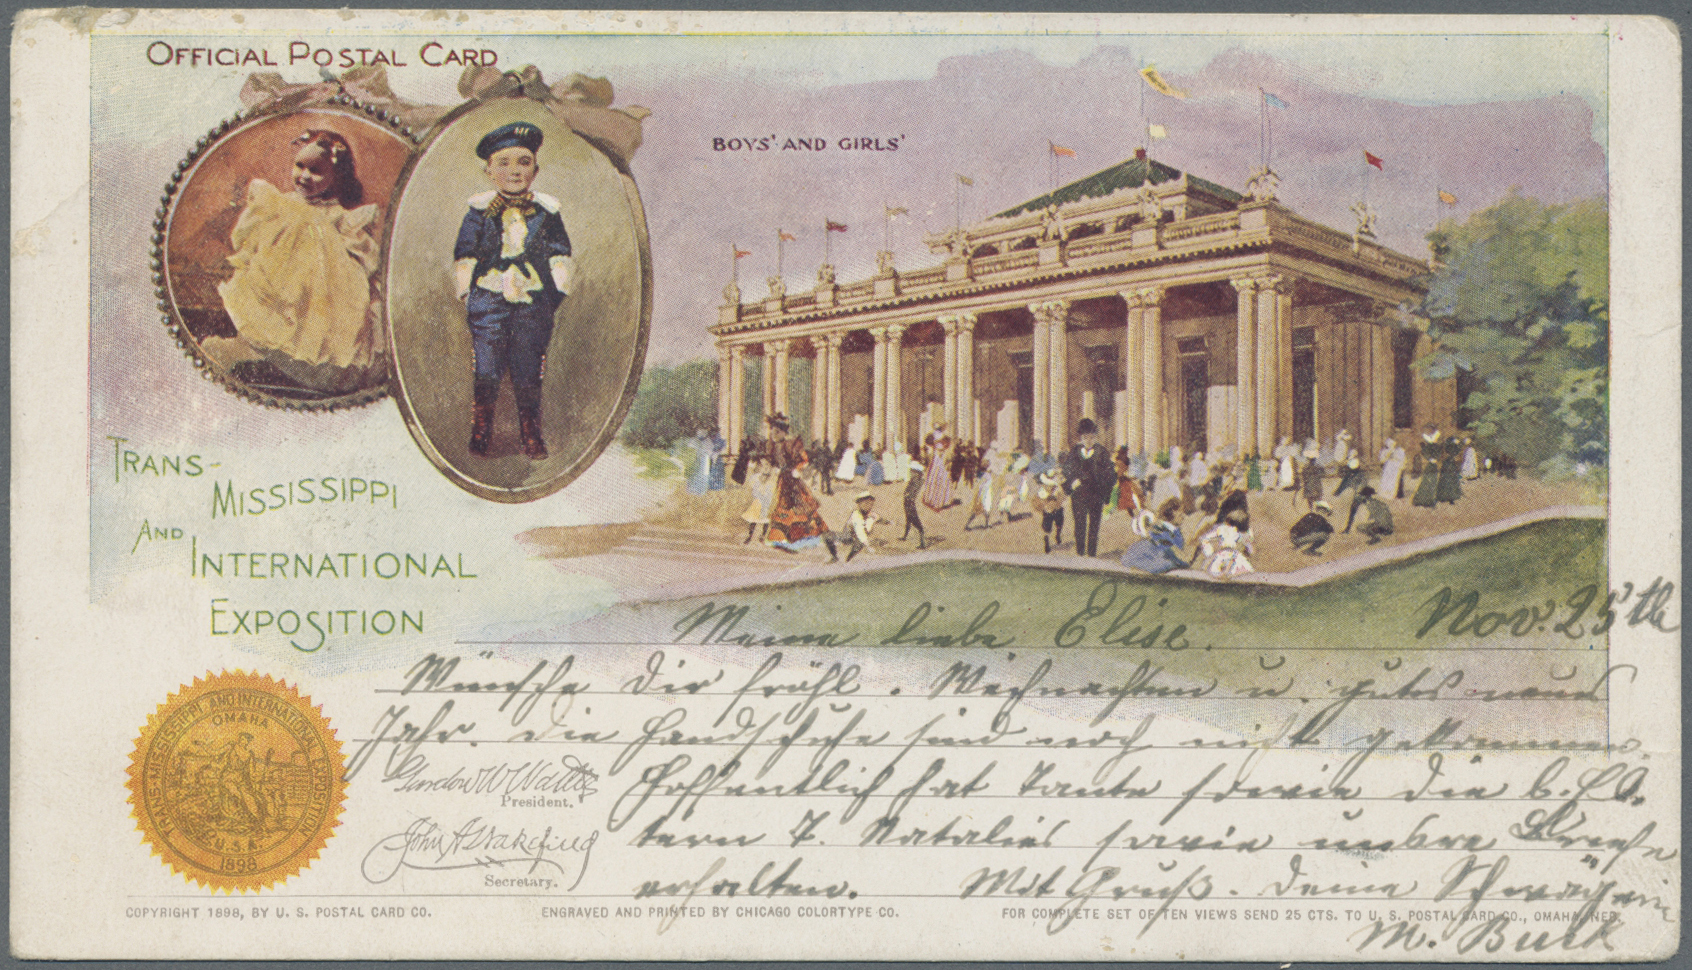 OFFICIAL POSTAL CARD
BOYS' AND GIRLS'
TRANS-
MISSISSIPPI
AND
INTERNATIONAL
EXPOSITION
Nov. 25th
Meine liebe Elise.
Wünsche Dir fröhl. Weihnachten u. gutes neues
Jahr. Die Handschuhe sind noch nicht gekommen.
Hoffentlich hat Tante sowie die l.
T. Natalie sowie unsre Briefe
erhalten. Mit Gruß. Deine Schwägerin
M. Buck
TRANS-MISSISSIPPI AND INTERNATIONAL EXPOSITION
OMAHA
U.S.A.
1898
Gurdon W. Wattles
President.
John A. Wakefield
Secretary.
COPYRIGHT 1898, BY U. S. POSTAL CARD CO.
ENGRAVED AND PRINTED BY CHICAGO COLORTYPE CO.
FOR COMPLETE SET OF TEN VIEWS SEND 25 CTS. TO U. S. POSTAL CARD CO., OMAHA, NEB.